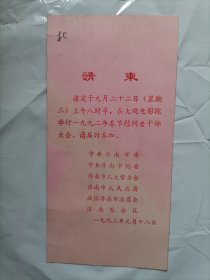 請柬
谨定于元月二十二日（星期
三）上午八时半，在大观电影院
举行一九九二年春节慰问老干部
大会。请届时参加。
中共济南市委
中共济南市纪委
济南市人大常委会
济南市人民政府
政协济南市委员会
济南军分区
一九九二年元月十八日